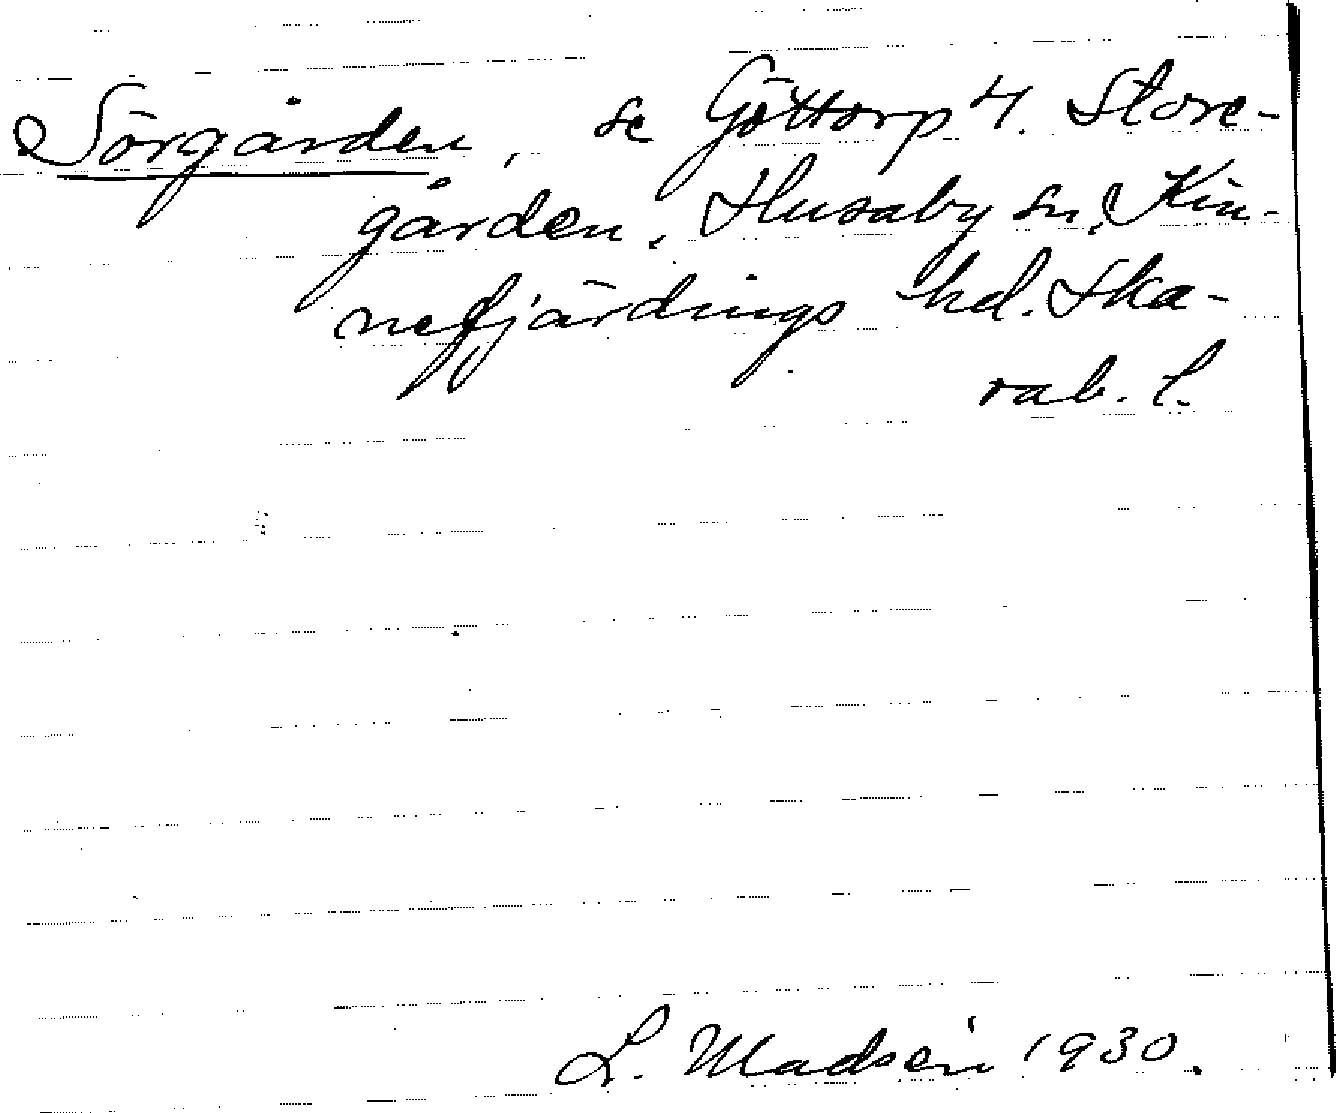 Sörgården, se Göttorp 4. Store-
gården, Husaby sn, Kin-
nefjärdings hd. Ska-
rab. l.
L. Madsén 1930.